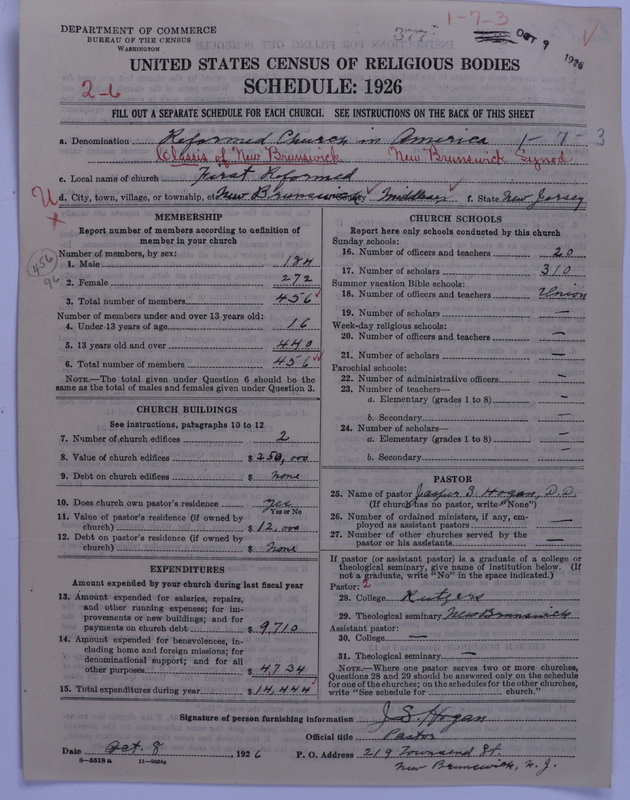 DEPARTMENT OF COMMERCE
BUREAU OF THE CENSUS
WASHINGTON
377
1-7-3
OCT 9 1926
UNITED STATES CENSUS OF RELIGIOUS BODIES
SCHEDULE: 1926
2-6
FILL OUT A SEPARATE SCHEDULE FOR EACH CHURCH. SEE INSTRUCTIONS ON THE BACK OF THIS SHEET
a. Denomination Reformed Church in America 1-7-3
Classis of New Brunswick New Brunswick Synod
c. Local name of church First Reformed
d. City, town, village, or township, etc New Brunswick Middlesex f. State New Jersey
MEMBERSHIP
Report number of members according to definition of
member in your church
Number of members, by sex:
1. Male 184
2. Female 272
3. Total number of members 456
Number of members under and over 13 years old:
4. Under 13 years of age 16
5. 13 years old and over 440
6. Total number of members 456
NOTE.—The total given under Question 6 should be the
same as the total of males and females given under Question 3.
456
96
CHURCH BUILDINGS
See instructions, paragraphs 10 to 12
7. Number of church edifices 2
8. Value of church edifices $ 250,000
9. Debt on church edifices $ None
10. Does church own pastor's residence Yes
Yes or No
11. Value of pastor's residence (if owned by
church) $ 12,000
12. Debt on pastor's residence (if owned by
church) $ None
EXPENDITURES
Amount expended by your church during last fiscal year
13. Amount expended for salaries, repairs,
and other running expenses; for im-
provements or new buildings; and for
payments on church debt $ 9,710
14. Amount expended for benevolences, in-
cluding home and foreign missions; for
denominational support; and for all
other purposes $ 4,734
15. Total expenditures during year $ 14,444
CHURCH SCHOOLS
Report here only schools conducted by this church
Sunday schools:
16. Number of officers and teachers 20
17. Number of scholars 310
Summer vacation Bible schools:
18. Number of officers and teachers Union
19. Number of scholars —
Week-day religious schools:
20. Number of officers and teachers —
21. Number of scholars —
Parochial schools:
22. Number of administrative officers —
23. Number of teachers—
a. Elementary (grades 1 to 8) —
b. Secondary —
24. Number of scholars—
a. Elementary (grades 1 to 8) —
b. Secondary —
PASTOR
25. Name of pastor Jasper S. Hogan, D.D.
(If church has no pastor, write "None")
26. Number of ordained ministers, if any, em-
ployed as assistant pastors —
27. Number of other churches served by the
pastor or his assistants —
If pastor (or assistant pastor) is a graduate of a college or
theological seminary, give name of institution below. (If
not a graduate, write "No" in the space indicated.)
Pastor: 2
28. College Rutgers
29. Theological seminary New Brunswick
Assistant pastor:
30. College —
31. Theological seminary —
NOTE.—Where one pastor serves two or more churches,
Questions 28 and 29 should be answered only on the schedule
for one of the churches; on the schedules for the other churches,
write "See schedule for church."
Signature of person furnishing information J. S. Hogan
Official title Pastor
Date Oct. 8, 1926 P. O. Address 219 Townsend St.
New Brunswick, N. J.